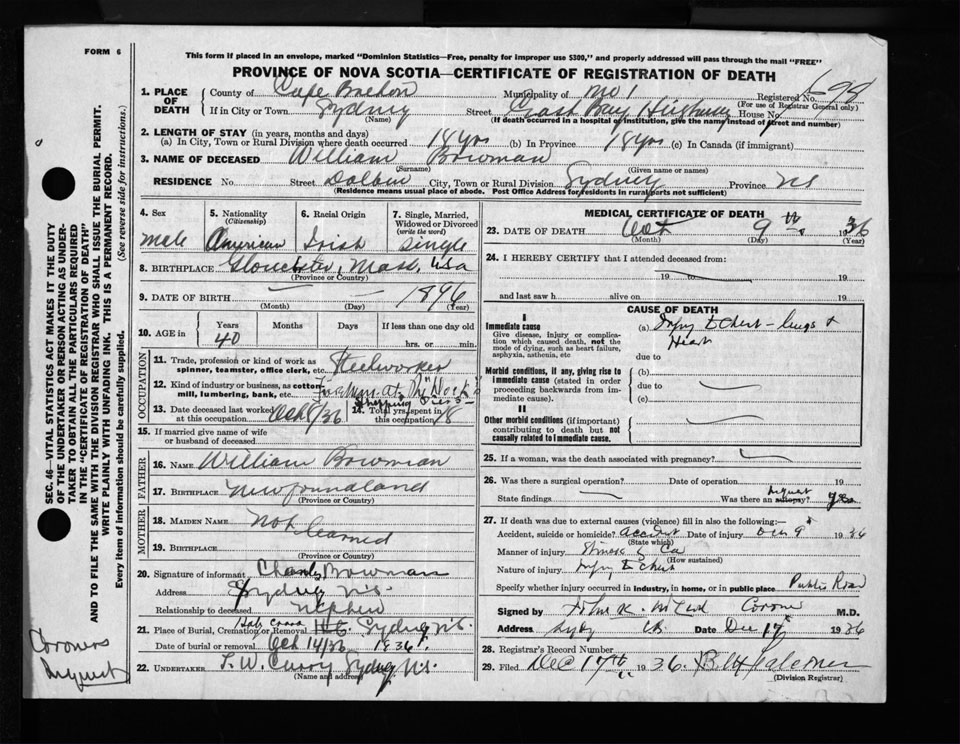 FORM 6
This form if placed in an envelope, marked "Dominion Statistics—Free, penalty for improper use $300," and properly addressed will pass through the mail "FREE"
PROVINCE OF NOVA SCOTIA—CERTIFICATE OF REGISTRATION OF DEATH
SEC. 46—VITAL STATISTICS ACT MAKES IT THE DUTY
OF THE UNDERTAKER OR PERSON ACTING AS UNDER-
TAKER TO OBTAIN ALL THE PARTICULARS REQUIRED
IN THE "CERTIFICATE OF REGISTRATION OF DEATH"
AND TO FILE THE SAME WITH THE DIVISION REGISTRAR WHO SHALL ISSUE THE BURIAL PERMIT.
WRITE PLAINLY WITH UNFADING INK. THIS IS A PERMANENT RECORD.
Every item of information should be carefully supplied. (See reverse side for instructions.)
Coroners
Inquest
1. PLACE OF DEATH County of Cape Breton Municipality of No 1 Registered No. 98
(For use of Registrar General only)
If in City or Town Sydney Street Glace Bay Highway House No.
(Name) (If death occurred in a hospital or institution, give the name instead of street and number)
2. LENGTH OF STAY (in years, months and days)
(a) In City, Town or Rural Division where death occurred 18 yrs (b) In Province 18 yrs (c) In Canada (if immigrant)
3. NAME OF DECEASED William Bowman
(Surname) (Given name or names)
RESIDENCE No. Street Dolbin City, Town or Rural Division Sydney Province NS
(Residence means usual place of abode. Post Office Address for residents in rural parts not sufficient)
4. Sex 5. Nationality (Citizenship) 6. Racial Origin 7. Single, Married, Widowed or Divorced (write the word)
Male American Irish Single
8. BIRTHPLACE Gloucester, Mass, USA
(Province or Country)
9. DATE OF BIRTH — — 1896
(Month) (Day) (Year)
10. AGE in Years Months Days If less than one day old
40 hrs. or min.
OCCUPATION
11. Trade, profession or kind of work as spinner, teamster, office clerk, etc. Steelworker
12. Kind of industry or business, as cotton mill, lumbering, bank, etc. Foreman at the "Dock"
Shipping Pier
13. Date deceased last worked at this occupation Oct 9/36 14. Total yrs. spent in this occupation 18
15. If married give name of wife or husband of deceased
FATHER
16. NAME William Bowman
17. BIRTHPLACE Newfoundland
(Province or Country)
MOTHER
18. MAIDEN NAME Not learned
19. BIRTHPLACE
(Province or Country)
20. Signature of informant Charles Bowman
Address Sydney N.S.
Relationship to deceased nephew
21. Place of Burial, Cremation or Removal Holy Cross Sydney N.S.
Date of burial or removal Oct 14/36 1936
22. UNDERTAKER T. W. Curry Sydney N.S.
(Name and address)
MEDICAL CERTIFICATE OF DEATH
23. DATE OF DEATH Oct 9th 1936
(Month) (Day) (Year)
24. I HEREBY CERTIFY that I attended deceased from:
19 to 19
and last saw h alive on 19
CAUSE OF DEATH
I
Immediate cause (a) Injury to Chest – lungs + Heart
Give disease, injury or complication which caused death, not the mode of dying, such as heart failure, asphyxia, asthenia, etc
due to
Morbid conditions, if any, giving rise to immediate cause (stated in order proceeding backwards from immediate cause).
(b)
due to
(c)
II
Other morbid conditions (if important) contributing to death but not causally related to immediate cause.
25. If a woman, was the death associated with pregnancy?
26. Was there a surgical operation? Date of operation 19
State findings Was there an autopsy? Inquest yes
27. If death was due to external causes (violence) fill in also the following:—
Accident, suicide or homicide? accident Date of injury Oct 9th 1936
(State which)
Manner of injury Struck by Car
(How sustained)
Nature of injury Injury to chest
Specify whether injury occurred in industry, in home, or in public place Public Road
Signed by John K. McLeod Coroner M.D.
Address Sydney CB. Date Dec 17th 1936
28. Registrar's Record Number
29. Filed Dec 17th 1936.
(Division Registrar)